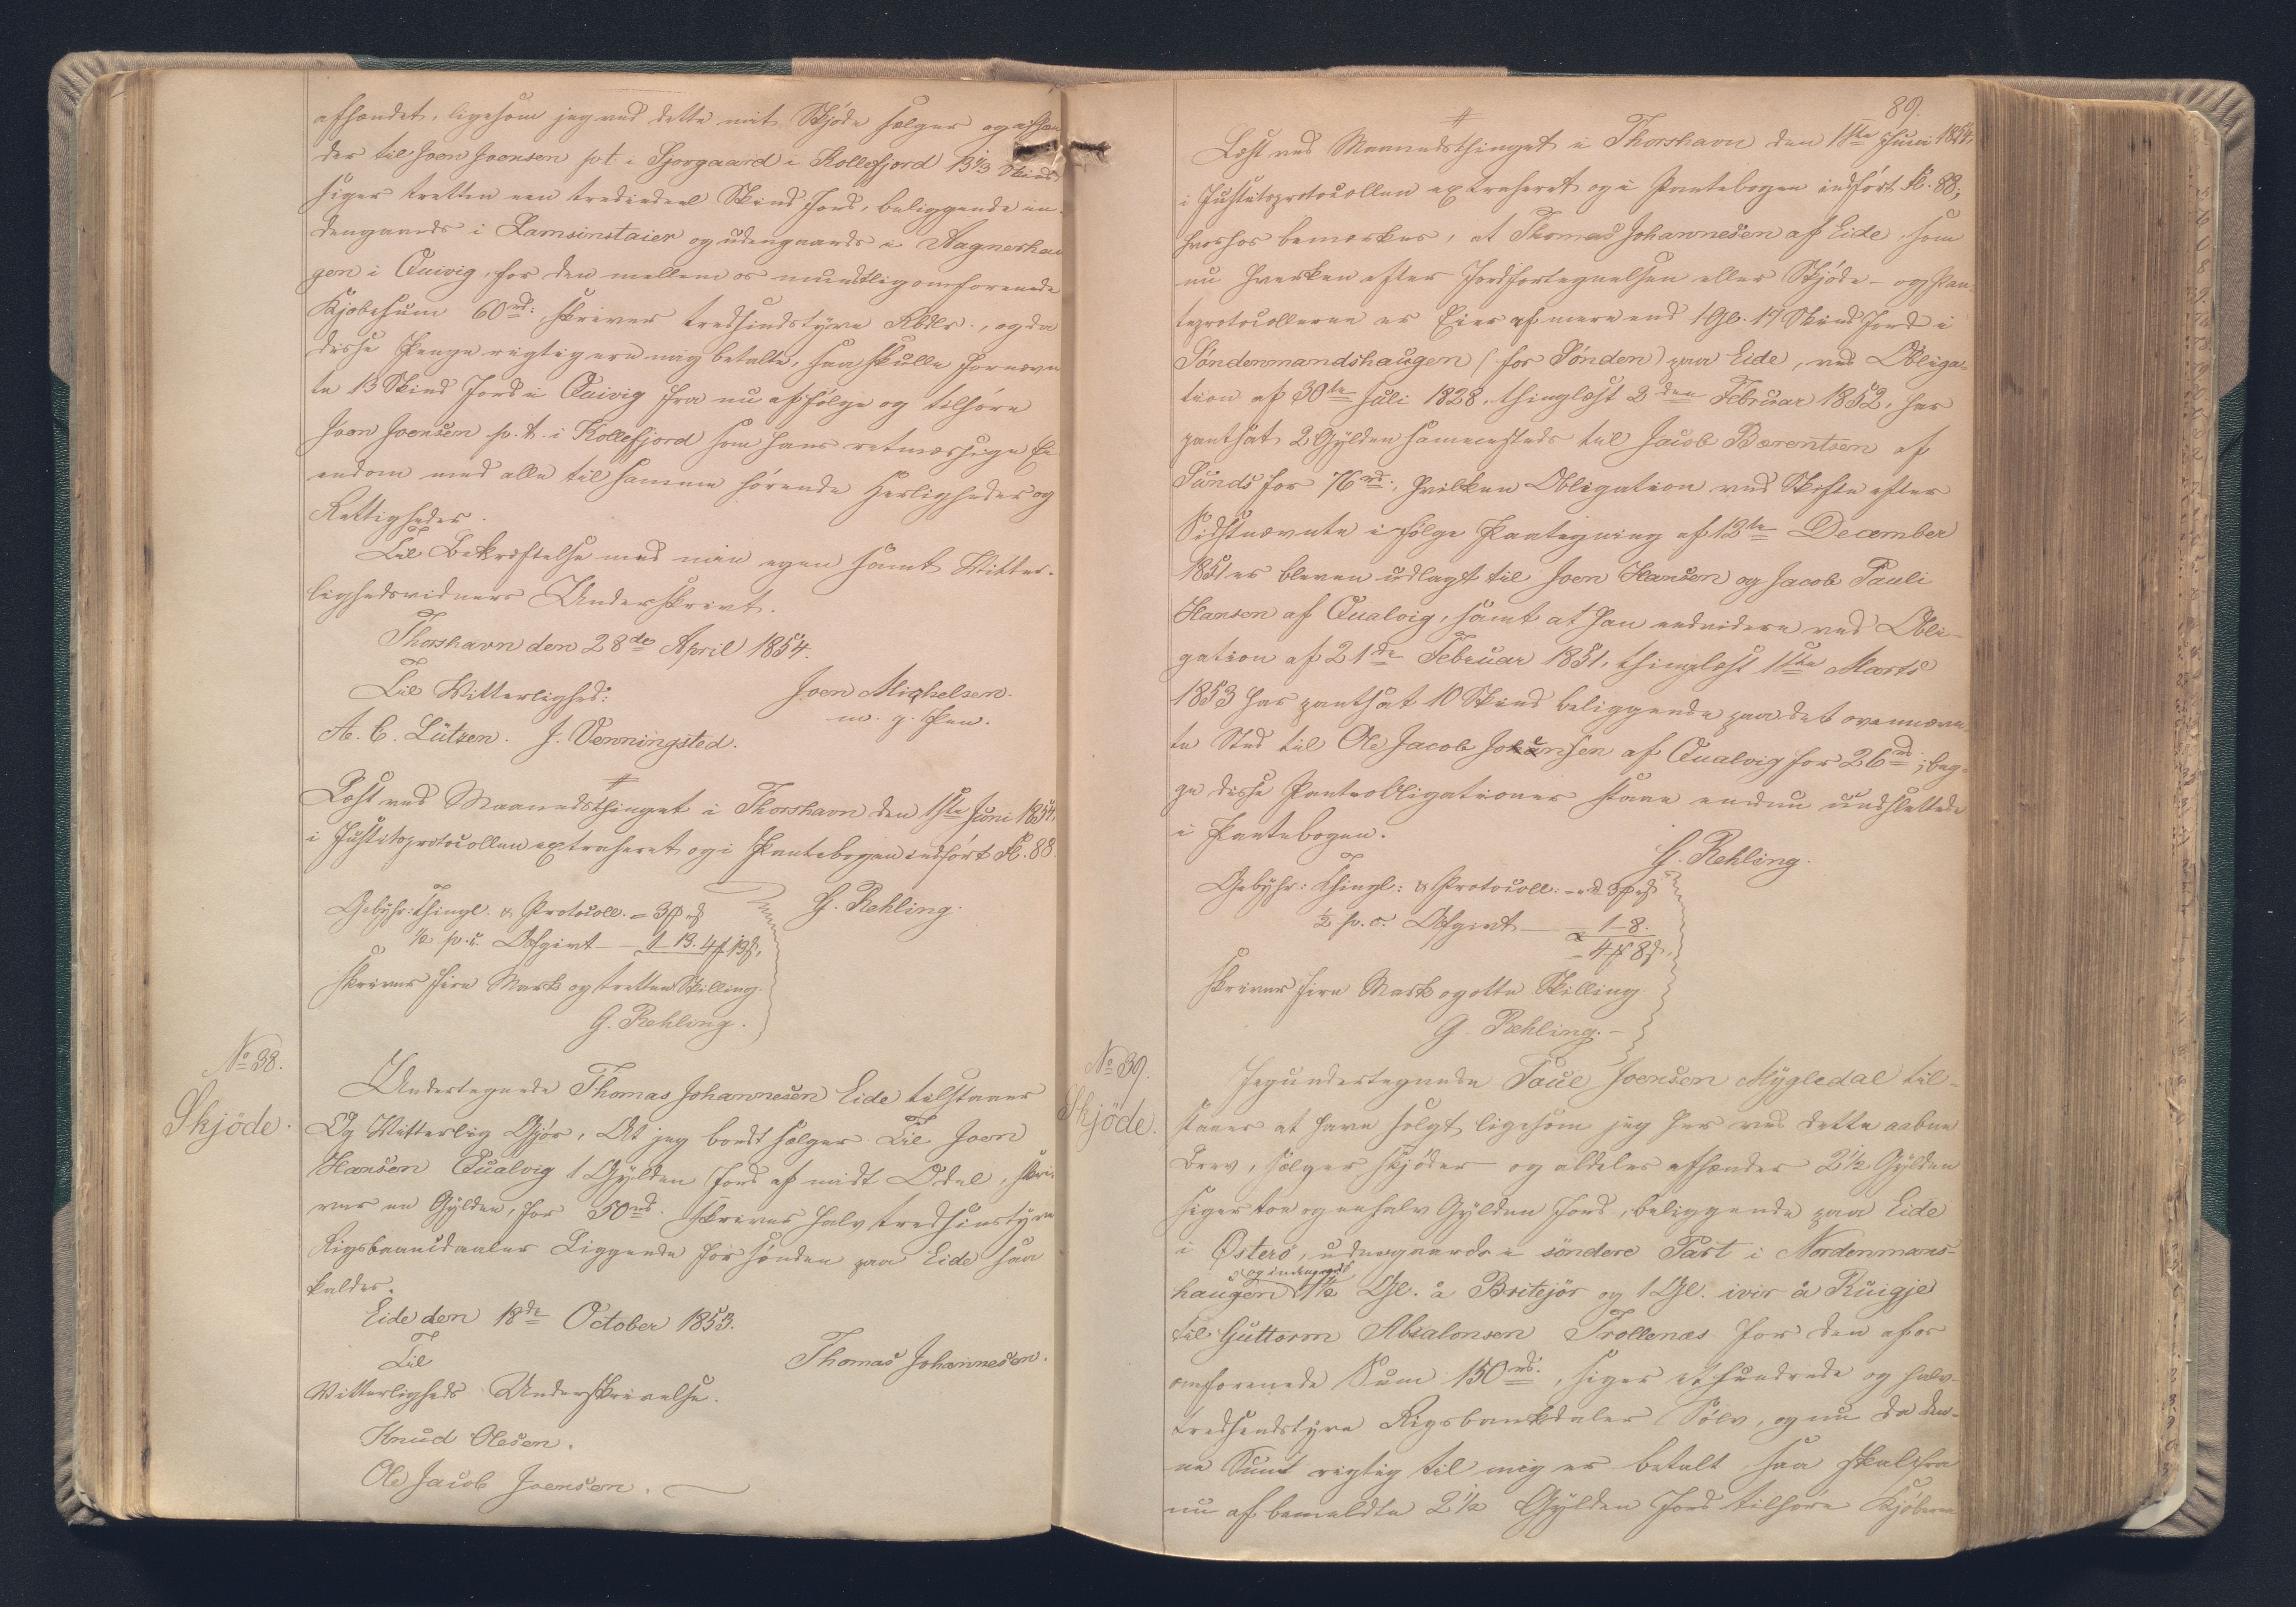 afhændet, ligesom jeg ved dette mit Skjøde sælger og afhæn
der til Joen Joensen p.t. i Gjorgaard i Kollefjord 13 1/3 Skind
siger tretten een trediedeel Skind Jord, beliggende in-
dengaards i Lamsinstaier og udengaards i Aagnershau
gen i Qvivig, for den mellem os mundtlig omforenede
Kjøbesum 60 rd: skriver tredsindstyve Rbdlr., og da
disse Penge rigtig ere mig betalte, saa skulle fornævn
te 13 Skind Jord i Qvivig fra nu af følge og tilhøre
Joen Joensen p.t. i Kollefjord som hans retmæssige Ei
endom med alle til samme hørende Herligheder og
Rettigheder.
Til Bekræftelse med min egen samt Vitter-
lighedsvidners Underskrivt.
Thorshavn den 28de April 1854.
Til Vitterlighed:
Joen Michelsen.
m. f. Pen.
A. C. Lützen. J. Venningsted.
#
Læst ved Maanedsthinget i Thorshavn den 1ste Juni 1854,
i Justitsprotocollen extraheret og i Pantebogen indført Fl. 88.
G. Rehling.
Gebyhr: Thingl. & Protocoll. = 3 ₰
1/2 p.c. Afgivt - 1 - 13. 4 ₰ 13 ß.
skriver fire Mark og tretten Skilling.
G. Rehling.
No 38.
Skjöde.
Undertegnede Thomas Johannesen Eide tilstaaer
Og Vitterlig Gjør, At jeg bordt sælger Til Joen
Hansen Qualvig 1 Gylden Jord af midt Odel, skri-
ver en Gylden, for 50 rd. skriver halv tredsinstyve
Rigsbanckdaaler Liggende for sønden paa Eide saa
kaldes.
Eide den 18de October 1853.
Til
Thomas Johannesen.
Vitterligheds Underskrivelse.
Knud Olesen.
Ole Jacob Joensen.
89.
#
Læst ved Maanedsthinget i Thorshavn den 1ste Juni 1854,
i Justitsprotocollen extraheret og i Pantebogen indført Fl. 88,
hvorhos bemærkes, at Thomas Johannesen af Eide, som
nu hverken efter Jordfortegnelsen eller Skjøde- og Pan-
teprotocollerne er Eier af mere end 1 Gl. 17 Skind Jord i
Söndenmandshaugen (for Sönden) paa Eide, ved Obliga-
tion af 30te Juli 1828, thinglæst 2den Februar 1852, har
pantsat 2 Gylden sammesteds til Jacob Barentsen af
Sunds for 76 rd., hvilken Obligation ved Skifte efter
Sidstnævnte ifølge Paategning af 12te December
1851 er bleven udlagt til Joen Hansen og Jacob Pauli
Hansen af Qualvig, samt at han endvidere ved Obli-
gation af 21de Februar 1851, thinglæst 1ste Marts
1853 har pantsat 10 Skind beliggende paa det ovennævn-
te Sted til Ole Jacob Joensen af Qualvig for 26 rd; beg-
ge disse Pantobligationer staae endnu uudslettede
i Pantebogen.
G. Rehling.
Gebyhr: Thingl: & Protocoll: - rd 3 ₰ - ß
1/2 p.c. Afgivt - 1 - 8.
- 4 ₰ 8 ß.
skriver fire Mark og otte Skilling.
G. Rehling. -
No 39.
Skjöde.
Jeg undertegnede Poul Joensen Mygledal til-
staaer at have solgt, ligesom jeg her ved dette aabne
Brev, sælger skjøder og aldeles afhænder 2 1/2 Gylden
siger toe og en halv Gylden Jord, beliggende paa Eide
i Österö, udengaards i söndere Part i Nordenmans-
og indengards
haugen 1 1/2 Gl. å Britejör og 1 Gl. ivir å Ruigje
til Guttorm Absalonsen Trollenæs for den af os
omforenede Sum 150 rd:, siger et hundrede og halv-
tredsendstyve Rigsbankdaler Sölv, og nu da den-
ne Sum rigtig til mig er betalt saa skal fra
nu af bemeldte 2 1/2 Gylden Jord tilhøre Kjøberen